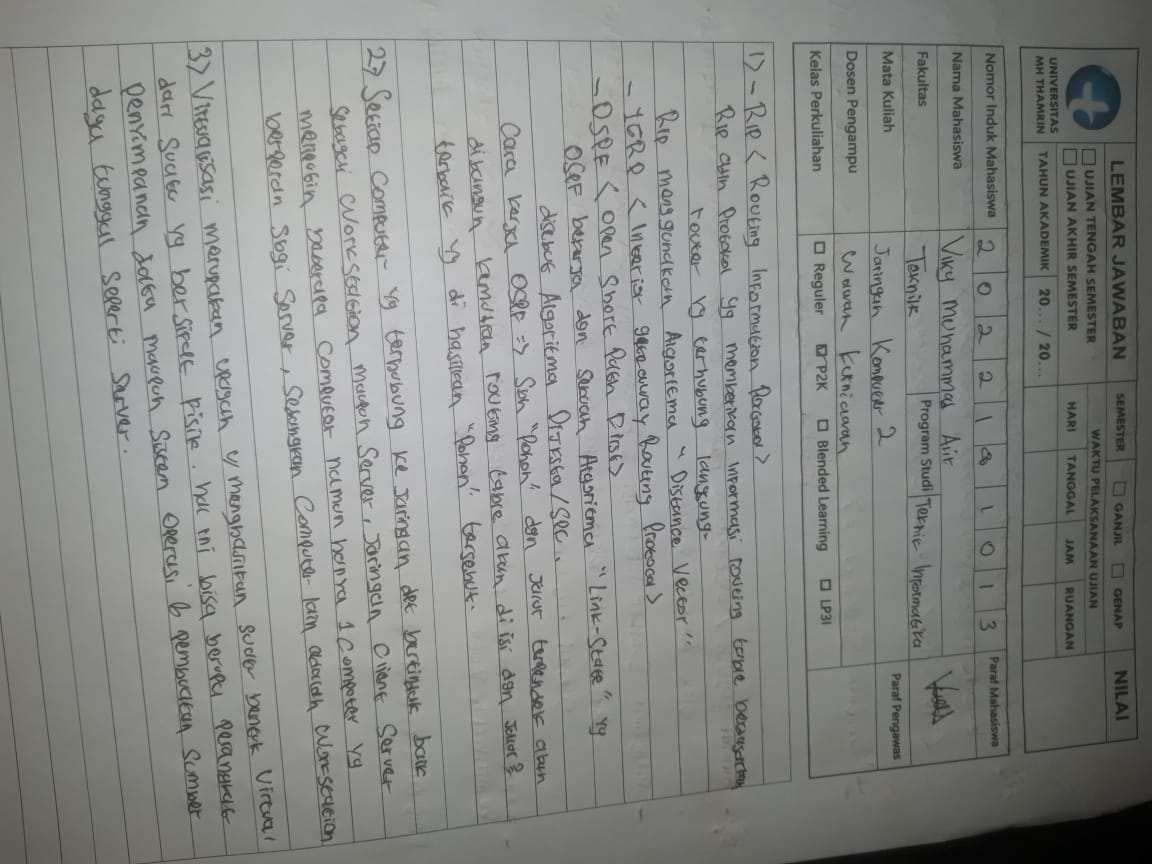 UNIVERSITAS
MH THAMRIN
LEMBAR JAWABAN
UJIAN TENGAH SEMESTER
UJIAN AKHIR SEMESTER
TAHUN AKADEMIK 20... / 20...
SEMESTER GANJIL GENAP
WAKTU PELAKSANAAN UJIAN
HARI TANGGAL JAM RUANGAN
NILAI
Nomor Induk Mahasiswa 2 0 2 2 1 8 1 0 1 3 Paraf Mahasiswa
Nama Mahasiswa Viky Muhammad Alir
Fakultas Teknik Program Studi Teknik Informatika
Mata Kuliah Jaringan Komputer 2 Paraf Pengawas
Dosen Pengampu Wawan Kurniawan
Kelas Perkuliahan Reguler P2K Blended Learning LP3I
1) - RIP < Routing Information Porotokol >
RIP adln Protokol yg memberikan informasi routing table berdasarkan
router yg terhubung langsung.
RIP menggunakan Algoritma "Distance Vector"
- IGRP < Interior gateaway Routing Protocol >
- OSPF < Open Short Path First >
OSPF bekerja dgn sebuah Algoritma "Link-State" yg
disebut Algoritma Dijksta/SPF.
Cara kerja OSPF => Sbh "Pohon" dgn jalur terpendek akan
dibangun kemudian routing table akan di isi dgn jalur2
terbaik yg di hasilkan "Pohon" tersebut.
2) Setiap Computer yg terhubung ke Jaringan dpt bertindak baik
Sebagai Workstation maupun Server, Jaringan Client Server
merupakan beberapa Computer namun hanya 1 Computer yg
berperan Sbgi Server, Sedangkan Computer lain adalah Workstation
3) Virtualisasi merupakan upaya u/ menghadirkan suatu bentuk Virtual
dari Suatu yg bersifat fisik. hal ini bisa berupa perangkat
penyimpanan data maupun Sistem Operasi & pembuatan Sumber
daya tunggal Seperti Server.